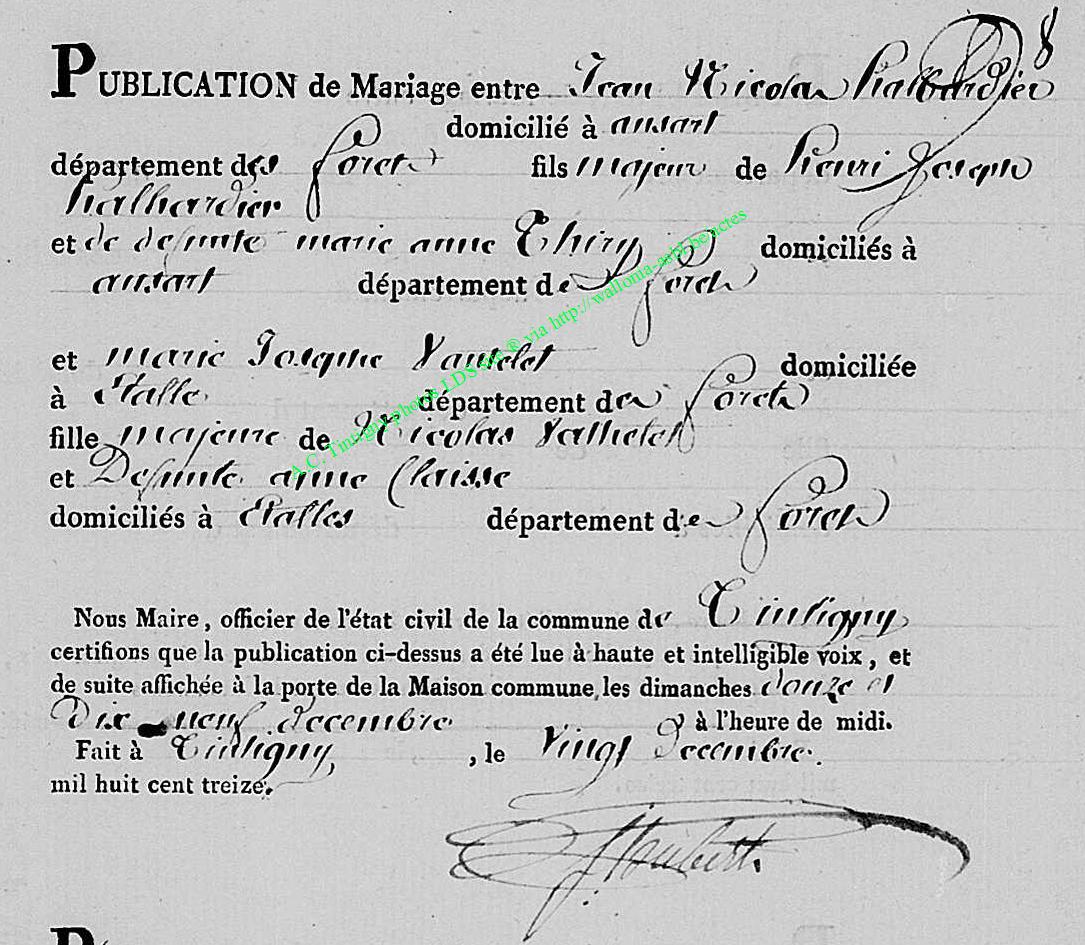 8
PUBLICATION de Mariage entre Jean Nicolas
domicilié à ansart
département des foret fils majeur de henri Joseph
halbardier
et de defunte marie anne Thiry domiciliés à
ansart département des forets
et marie Josephe domiciliée
à Etalle département des forets
fille majeure de Nicolas
et Defunte anne Claisse
domiciliés à Etalles département des forets
Nous Maire, officier de l'état civil de la commune de Tintigny
certifions que la publication ci-dessus a été lue à haute et intelligible voix, et
de suite affichée à la porte de la Maison commune, les dimanches douze et
Dix neuf decembre à l'heure de midi.
Fait à Tintigny, , le vingt Decembre.
mil huit cent treize.
A.C. Tintigny photos LDS site ® via http://wallonia-asbl.be/actes